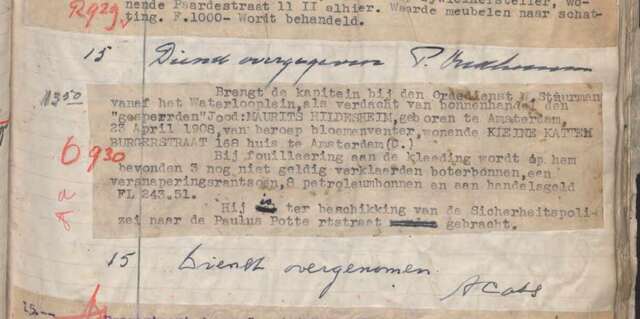 R929
nende Paardestraat 11 II alhier. Waarde meubelen naar schat-
ting. F.1000- Wordt behandeld.
15 Dienst overgegeven P.
1350
Brengt de kapitein bij den Ordedienst W. Stuurman
vanaf het Waterlooplein, als verdacht van bonnenhandel, den
"gesperrden" Jood: MAURITS HILDESHEIM, geboren te Amsterdam,
23 April 1908, van beroep bloemenventer, wonende KLEINE KATTEN
BURGERSTRAAT 168 huis te Amsterdam (C.)
6930
Bij fouilleering aan de kleeding wordt op hem
bevonden 3 nog niet geldig verklaarden boterbonnen, een
versnaperingsrantsoen, 8 petroleumbonnen en aan handelsgeld
FL 243.51.
Hij is ter beschikking van de Sicherheitspoli-
zei naar de Paulus Potte rtstraat gebracht.
15 Dienst overgenomen
ACabs
15.--